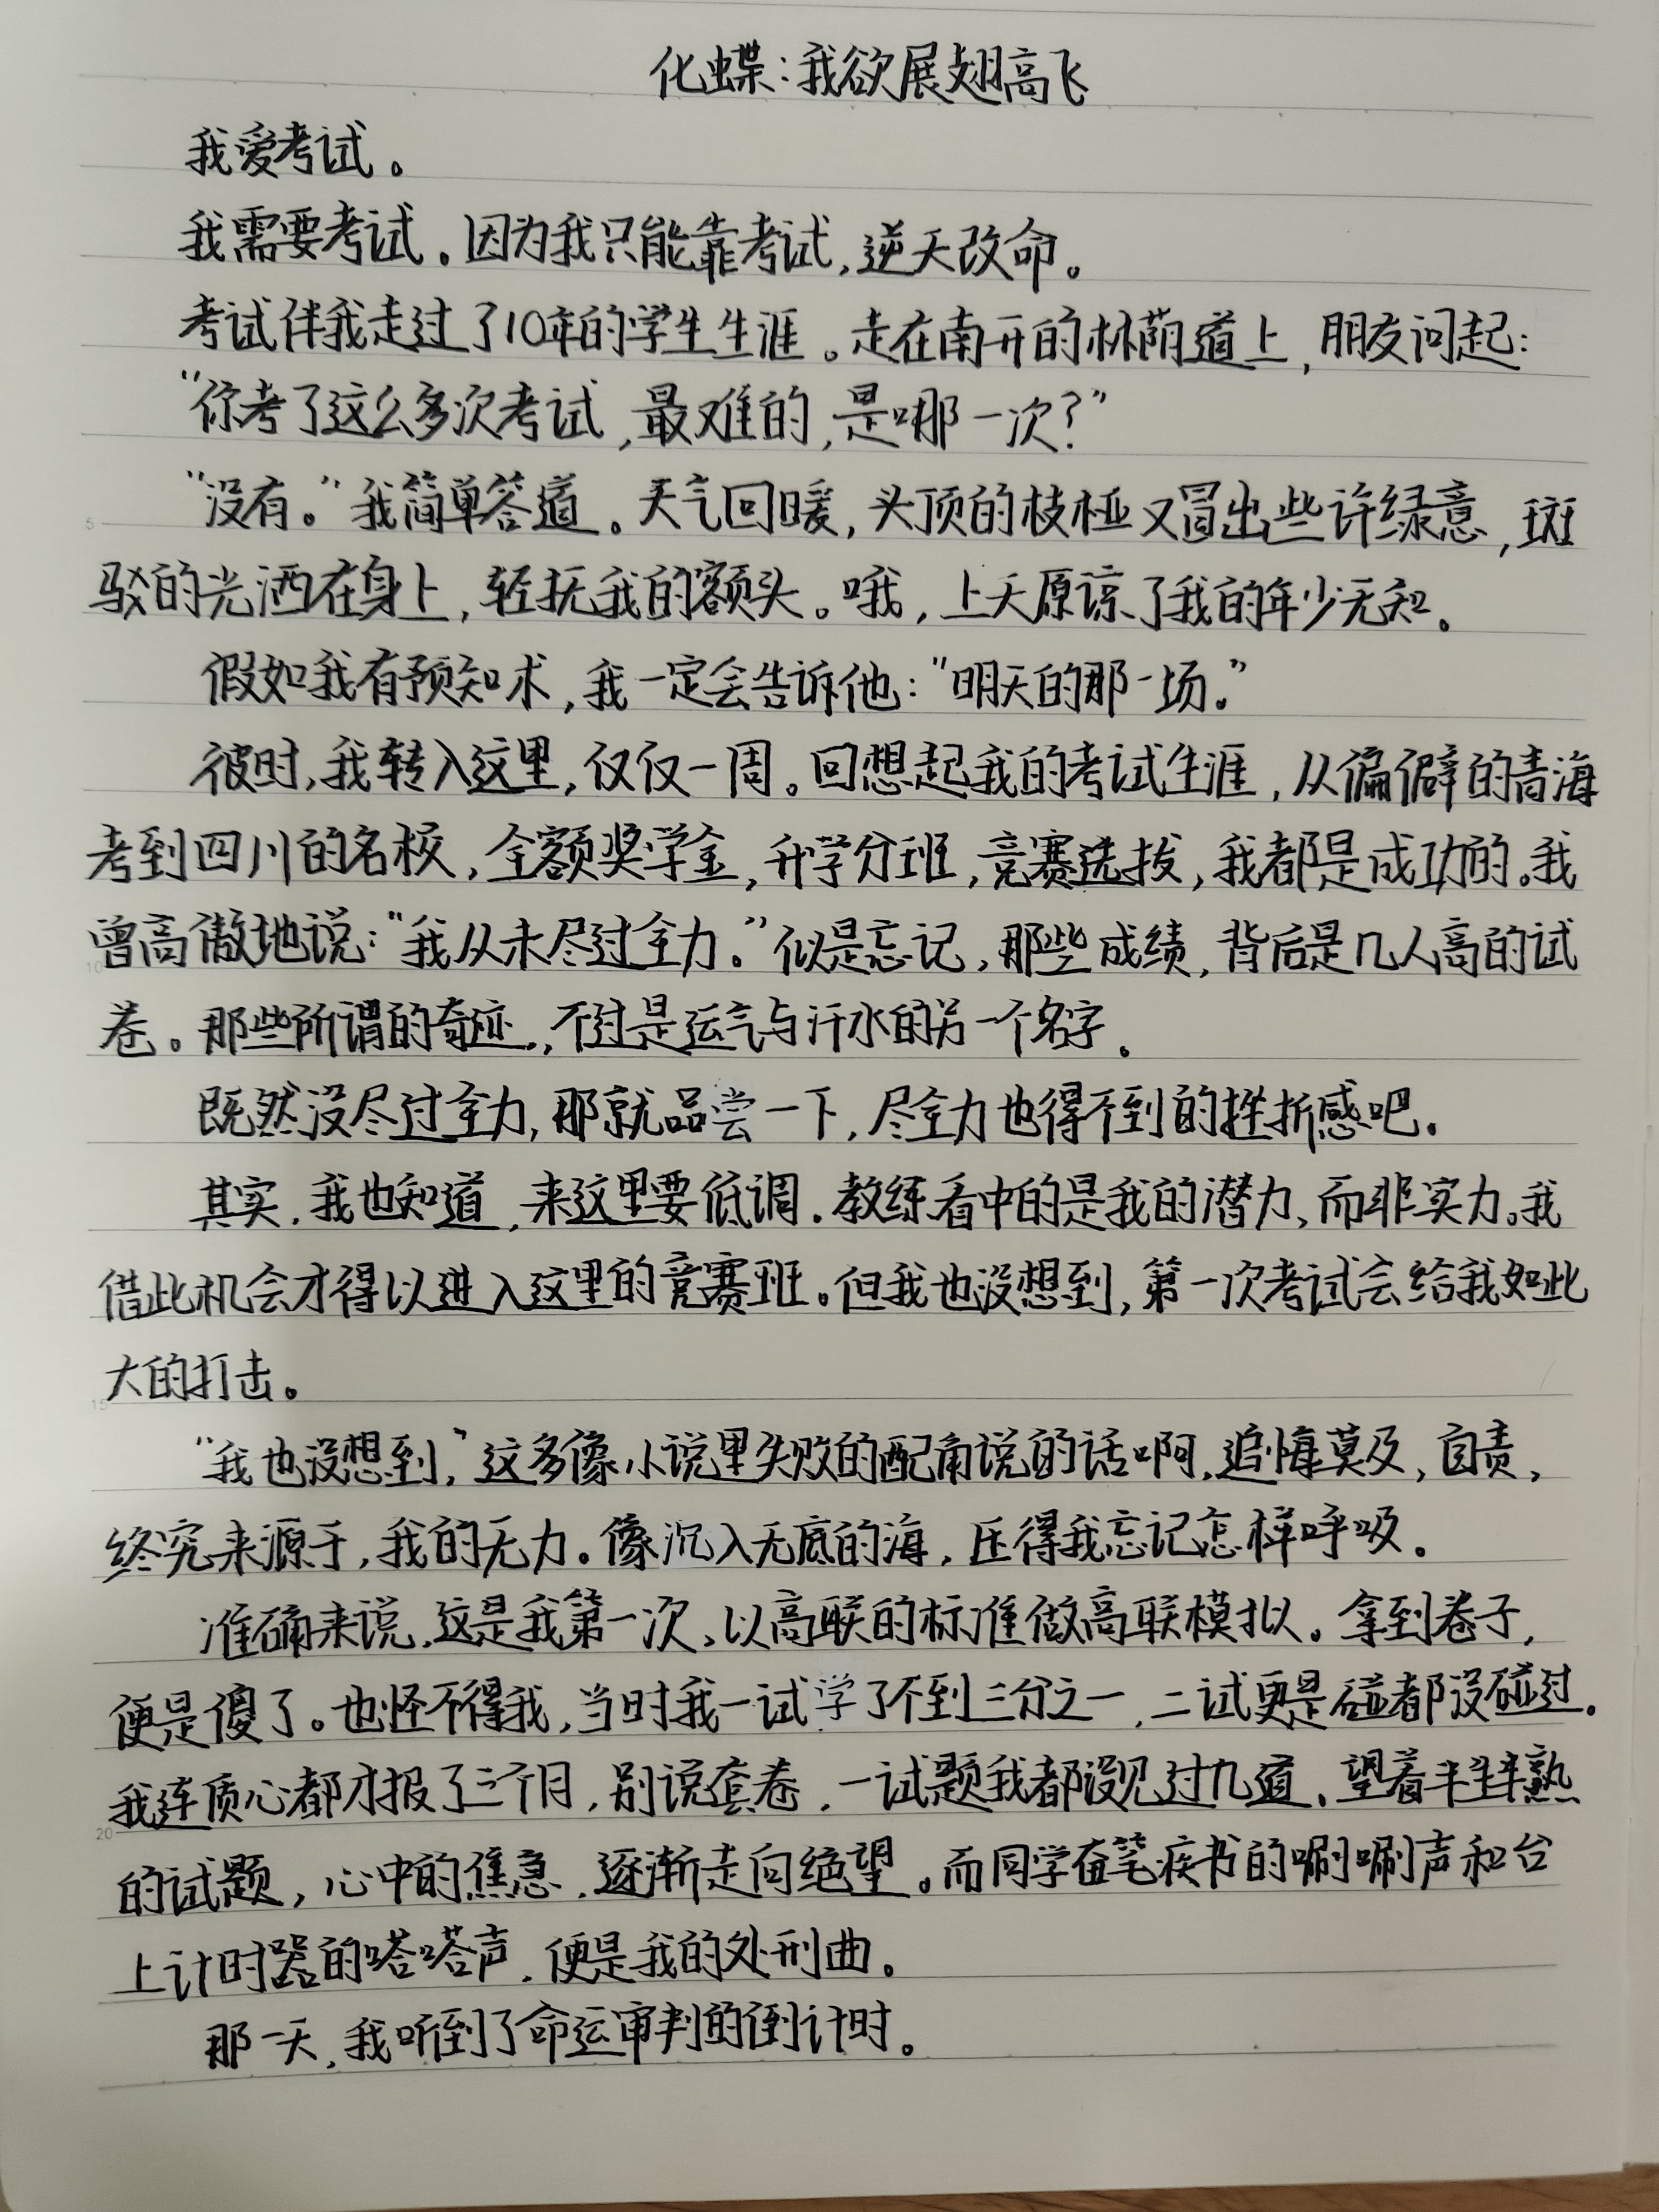 化蝶：我欲展翅高飞
我爱考试。
我需要考试。因为我只能靠考试，逆天改命。
考试伴我走过了10年的学生生涯。走在南开的林荫道上，朋友问起：
“你考了这么多次考试，最难的，是哪一次？”
“没有。”我简单答道。天气回暖，头顶的枝桠又冒出些许绿意，斑
驳的光洒在身上，轻抚我的额头。哦，上天原谅了我的年少无知。
假如我有预知术，我一定会告诉他：“明天的那一场。”
彼时，我转入这里，仅仅一周。回想起我的考试生涯，从偏僻的青海
考到四川的名校，全额奖学金，升学分班，竞赛选拔，我都是成功的。我
曾高傲地说：“我从未尽过全力。”似是忘记，那些成绩，背后是几人高的试
卷。那些所谓的奇迹，不过是运气与汗水的另一个名字。
既然没尽过全力，那就品尝一下，尽全力也得不到的挫折感吧。
其实，我也知道，来这里要低调。教练看中的是我的潜力，而非实力。我
借此机会才得以进入这里的竞赛班。但我也没想到，第一次考试会给我如此
大的打击。
“我也没想到，”这多像小说里失败的配角说的话啊，追悔莫及，自责，
终究来源于，我的无力。像沉入无底的海，压得我忘记怎样呼吸。
准确来说，这是我第一次，以高联的标准做高联模拟。拿到卷子，
便是傻了。也怪不得我，当时我一试学了不到三分之一，二试更是碰都没碰过。
我连质心都才报了三个月，别说套卷，一试题我都没见过几道。望着半生半熟
的试题，心中的焦急，逐渐走向绝望。而同学奋笔疾书的唰唰声和台
上计时器的嗒嗒声，便是我的处刑曲。
那一天，我听到了命运审判的倒计时。
5
10
15
20